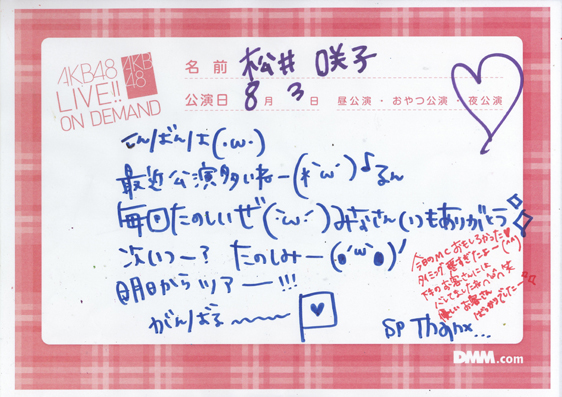 AKB48
LIVE!!
ON DEMAND
AKB
48
名前 松井 咲子
公演日 8月 3日 昼公演・おやつ公演・夜公演
こんばんは(・ω・)
最近公演多いねー(*´ω`)♪るん
毎回たのしいぜ(´・ω・`)みなさんいつもありがとう
次いつー? たのしみー(o´ω`o)ノ
明日からツアー!!!
がんばる〜〜〜
今日のMCおもしろかった♥
タイミング悪すぎたよー(^^)
下手のお客さんには
バレてました
優しいお客さん
ばっかりでしたー
SP Thanx...
DMM.com